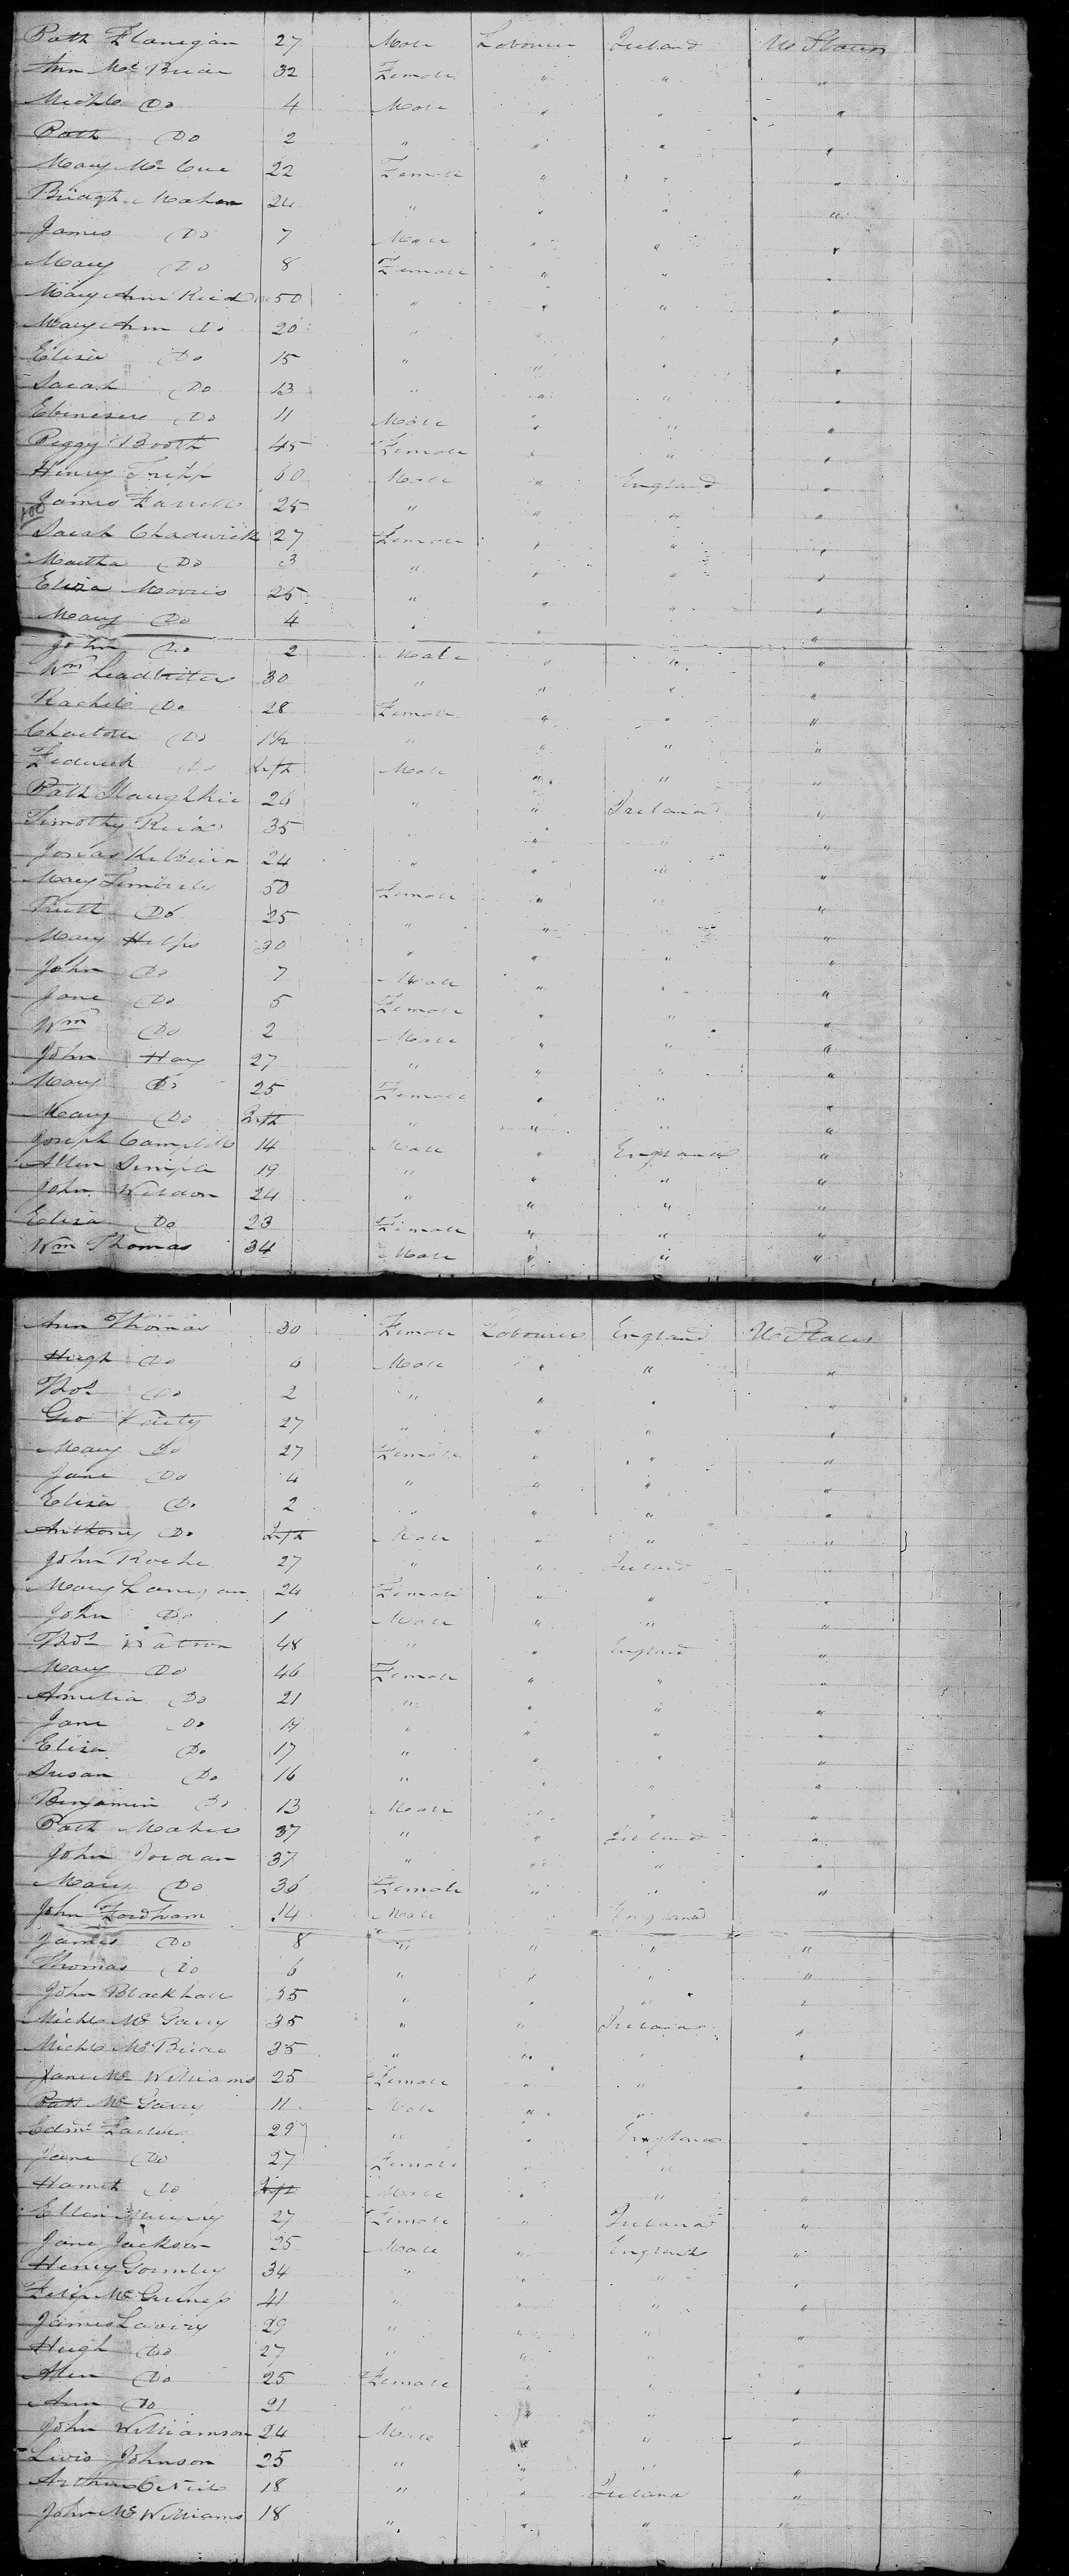 Path Flanigan 27 Male Labourer Ireland U States
Ann Mc 32 Female " " "
Michl Do 4 Male " " "
Path Do 2 " " " "
Mary Mc Cue 22 Female " " "
Bridgt Mahon 24 " " " "
James Do 7 Male " " "
Mary Do 8 Female " " "
Mary Ann Reid 50 " " " "
Mary Ann Do 20 " " " "
Eliza Do 15 " " " "
Sarah Do 13 " " " "
Ebeneser Do 11 Male " " "
Peggy Booth 45 Female " " "
Henry Tripp 60 Male " England "
James Farrell 25 " " " "
100
Sarah Chadwick 27 Female " " "
Martha Do 3 " " " "
Eliza Morris 25 " " " "
Mary Do 4 " " " "
John Do 2 Male " " "
Wm Leadbiter 30 " " " "
Rachile Do 28 Female " " "
Do 1½ " " " "
Frederick Do Inft Male " " "
Path 26 " " Ireland "
Timothy Reid 35 " " " "
Jonas 24 " " " "
Mary 50 Female " " "
Ruth Do 25 " " " "
Mary Helps 30 " " " "
John Do 7 Male " " "
Jane Do 5 Female " " "
Wm Do 2 Male " " "
John Hay 27 " " " "
Mary Do 25 Female " " "
Mary Do Inft " " " "
Joseph Campbell 14 Male " England "
Allen Simple 19 " " " "
John Weldon 24 " " " "
Eliza Do 23 Female " " "
Wm Thomas 34 Male " " "
Ann Thomas 30 Female Labourer England U States
Hugh Do 6 Male " " "
Thos Do 2 " " " "
Geo Varty 27 " " " "
Mary Do 27 Female " " "
Jane Do 4 " " " "
Eliza Do 2 " " " "
Anthony Do Inft Male " " "
John Roche 27 " " Ireland "
Mary Lanigan 24 Female " " "
John Do 1 Male " " "
Thos Watson 48 " " England "
Mary Do 46 Female " " "
Amelia Do 21 " " " "
Jane Do 19 " " " "
Eliza Do 17 " " " "
Susan Do 16 " " " "
Benjamin Do 13 Male " " "
Path Maher 37 " " Ireland "
John Jordan 37 " " " "
Mary Do 36 Female " " "
John Fordham 14 Male England
James Do 8 " " " "
Thomas Do 6 " " " "
John Blackhall 35 " " " "
Michl Mc Garry 35 " " Ireland "
Michl Mc 35 " " " "
Jane Mc Williams 25 Female " " "
Path Mc Garry 11 Male " " "
Edmd 29 " " England "
Jane Do 27 Female " " "
Do Inft Male " " "
Ellen Murphy 27 Female " Ireland "
Jane Jackson 25 Male " England "
Henry Gormley 34 " " " "
Felix Mc 41 " " " "
James Lavery 29 " " " "
Hugh Do 27 " " " "
Do 25 Female " " "
Ann Do 21 " " " "
John Williamson 24 Male " " "
Livis Johnson 25 " " " "
Arthur O Neile 18 " " Ireland "
John Mc Williams 18 " " " "